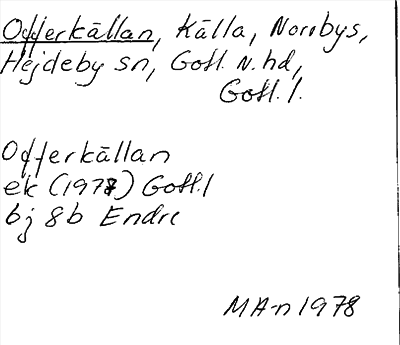 Offerkällan, Källa, Norrbys,
Hejdeby sn, Gotl. N. hd,
Gotl. l.
Offerkällan
ek (1978) Gotl. l
bj 8b Endre
MA-n 1978